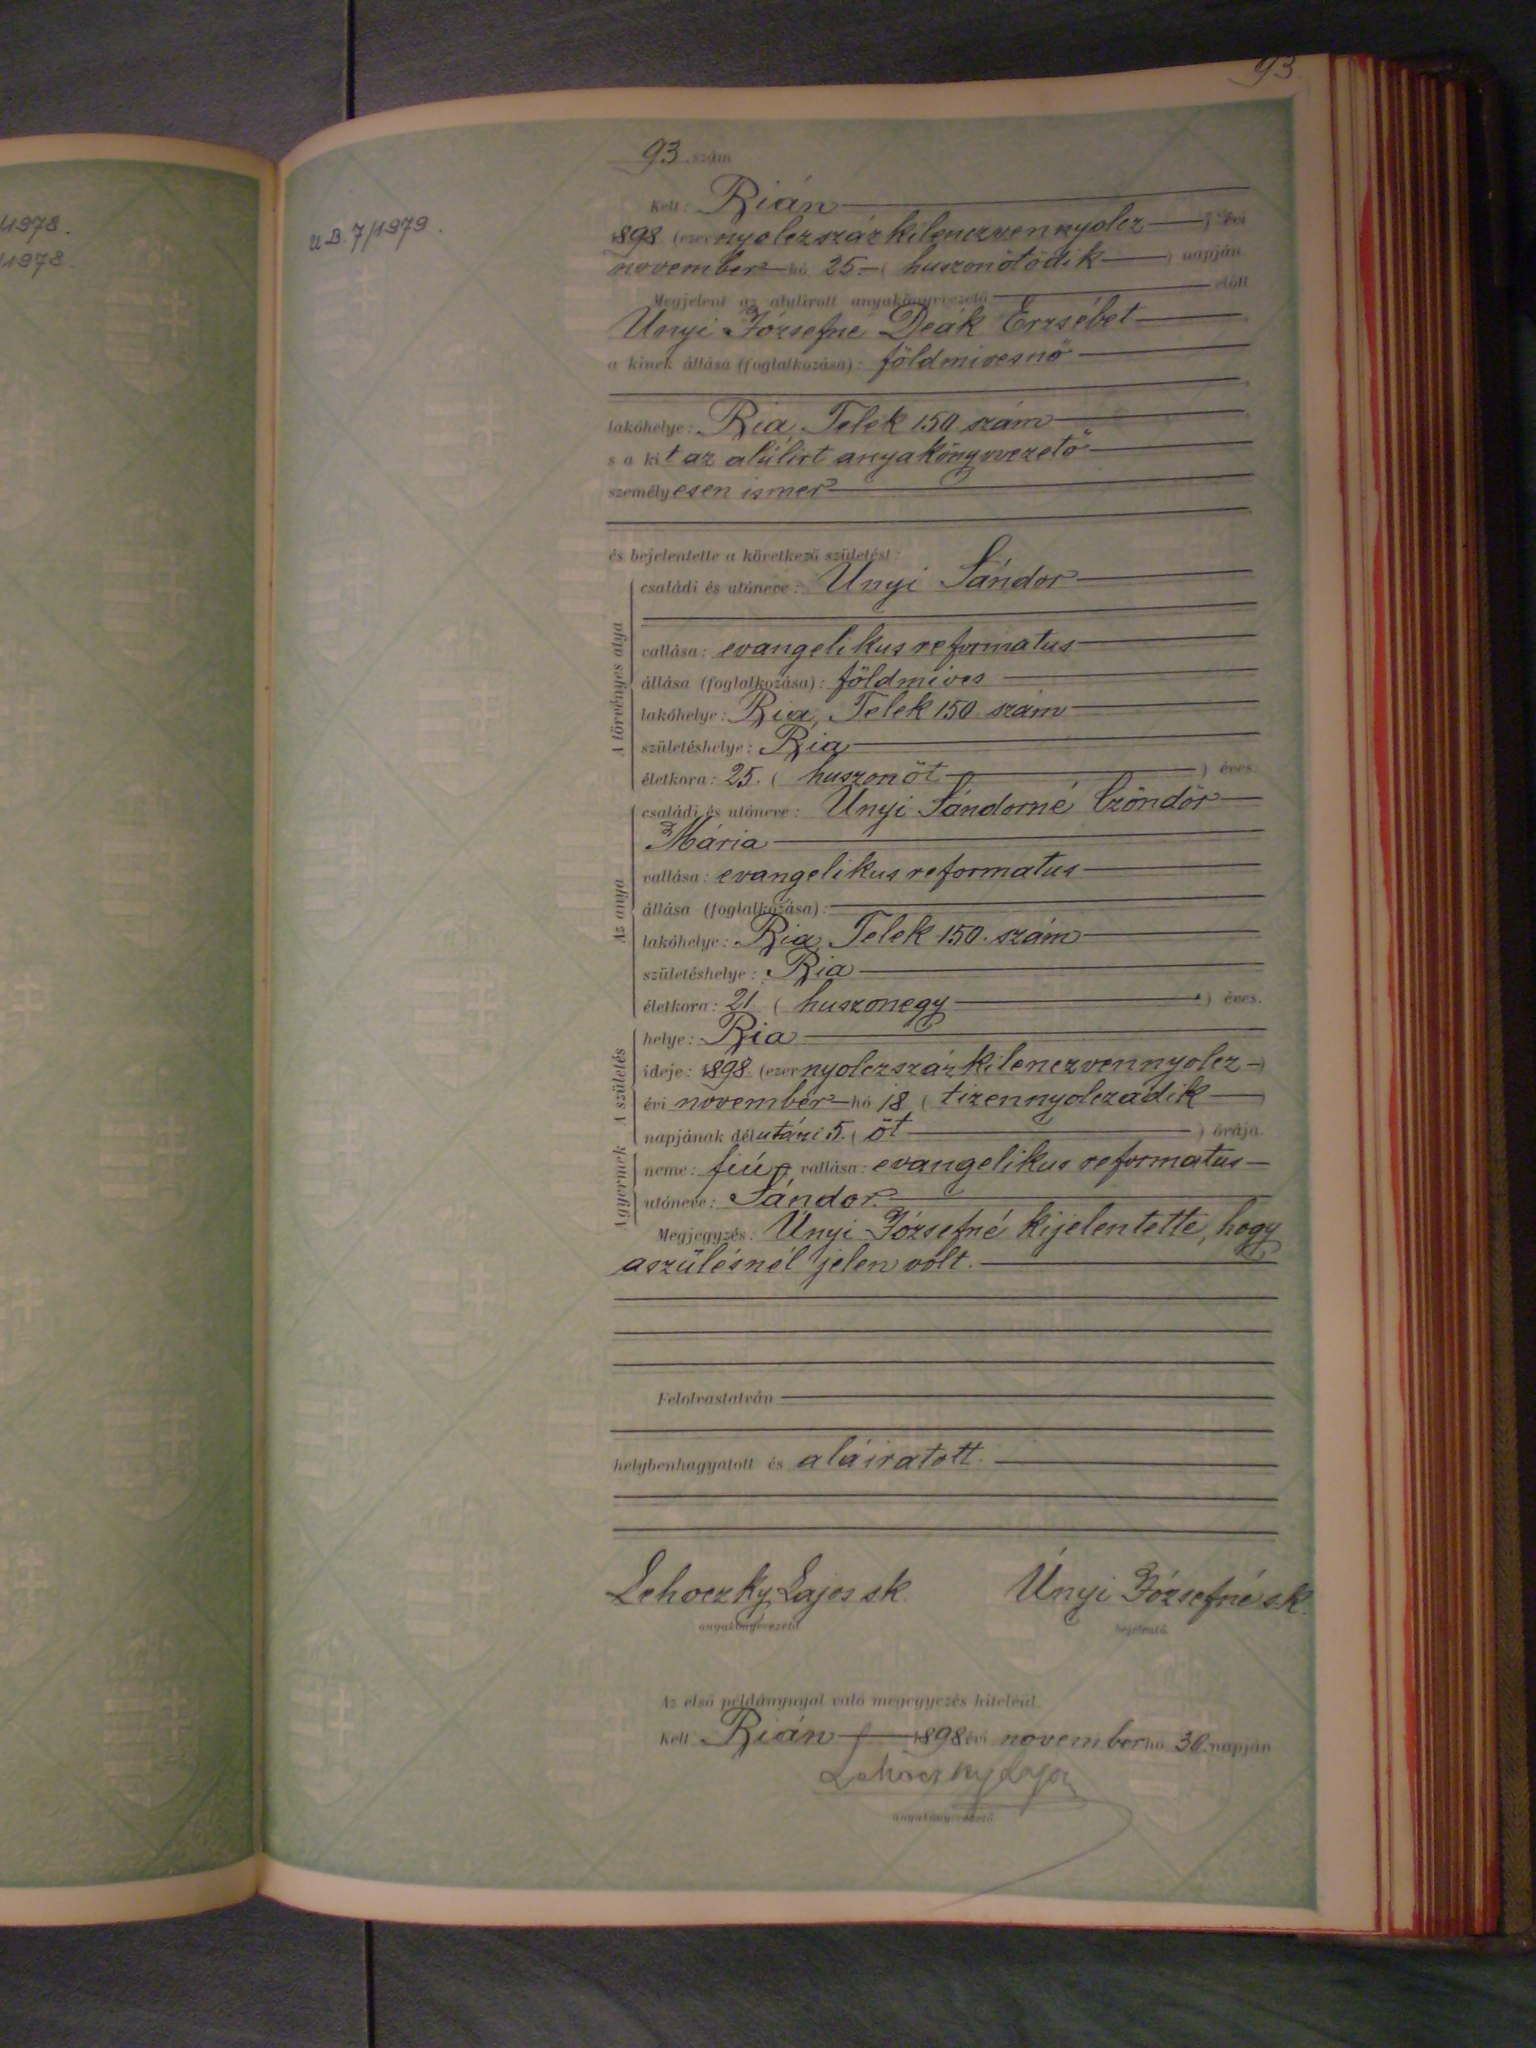 93.
/1978.
/1978.
U.B. 7/1979.
93. szám
Kelt: Rián
1898. (ezernyolczszázkilenczvennyolcz) évi
november hó 25. (huszonötödik) napján
Megjelent az alulirott anyakönyvvezető előtt
Unyi Józsefné Deák Erzsébet
a kinek állása (foglalkozása): földmivesnő
lakóhelye: Ria, Telek 150. szám
s a kit az alúlirt anyakönyvvezető
személyesen ismer
és bejelentette a következő születést:
A törvényes atya
családi és utóneve: Unyi Sándor
vallása: evangelikus reformatus
állása (foglalkozása): földmives
lakóhelye: Ria, Telek 150 szám
születéshelye: Ria
életkora: 25. (huszonöt) éves.
Az anya
családi és utóneve: Unyi Sándorné Czöndör
Mária
vallása: evangelikus reformatus
állása (foglalkozása):
lakóhelye: Ria, Telek 150. szám
születéshelye: Ria
életkora: 21 (huszonegy) éves.
A születés
helye: Ria
ideje: 1898. (ezernyolczszázkilenczvennyolcz)
évi november hó 18 (tizennyolczadik)
napjának délutáni 5. (öt) órája.
A gyermek
neme: fiú, vallása: evangelikus reformatus
utóneve: Sándor.
Megjegyzés. Unyi Józsefné kijelentette, hogy
a szülésnél jelen volt.
Felolvastatván
helybenhagyatott és aláiratott.
Lehoczky Lajos sk. Únyi Józsefné sk.
anyakönyvvezető bejelentő
Az első példánynyal való megegyezés hiteléül.
Kelt Rián 1898 évi november hó 30. napján
Lehoczky Lajos
anyakönyvvezető